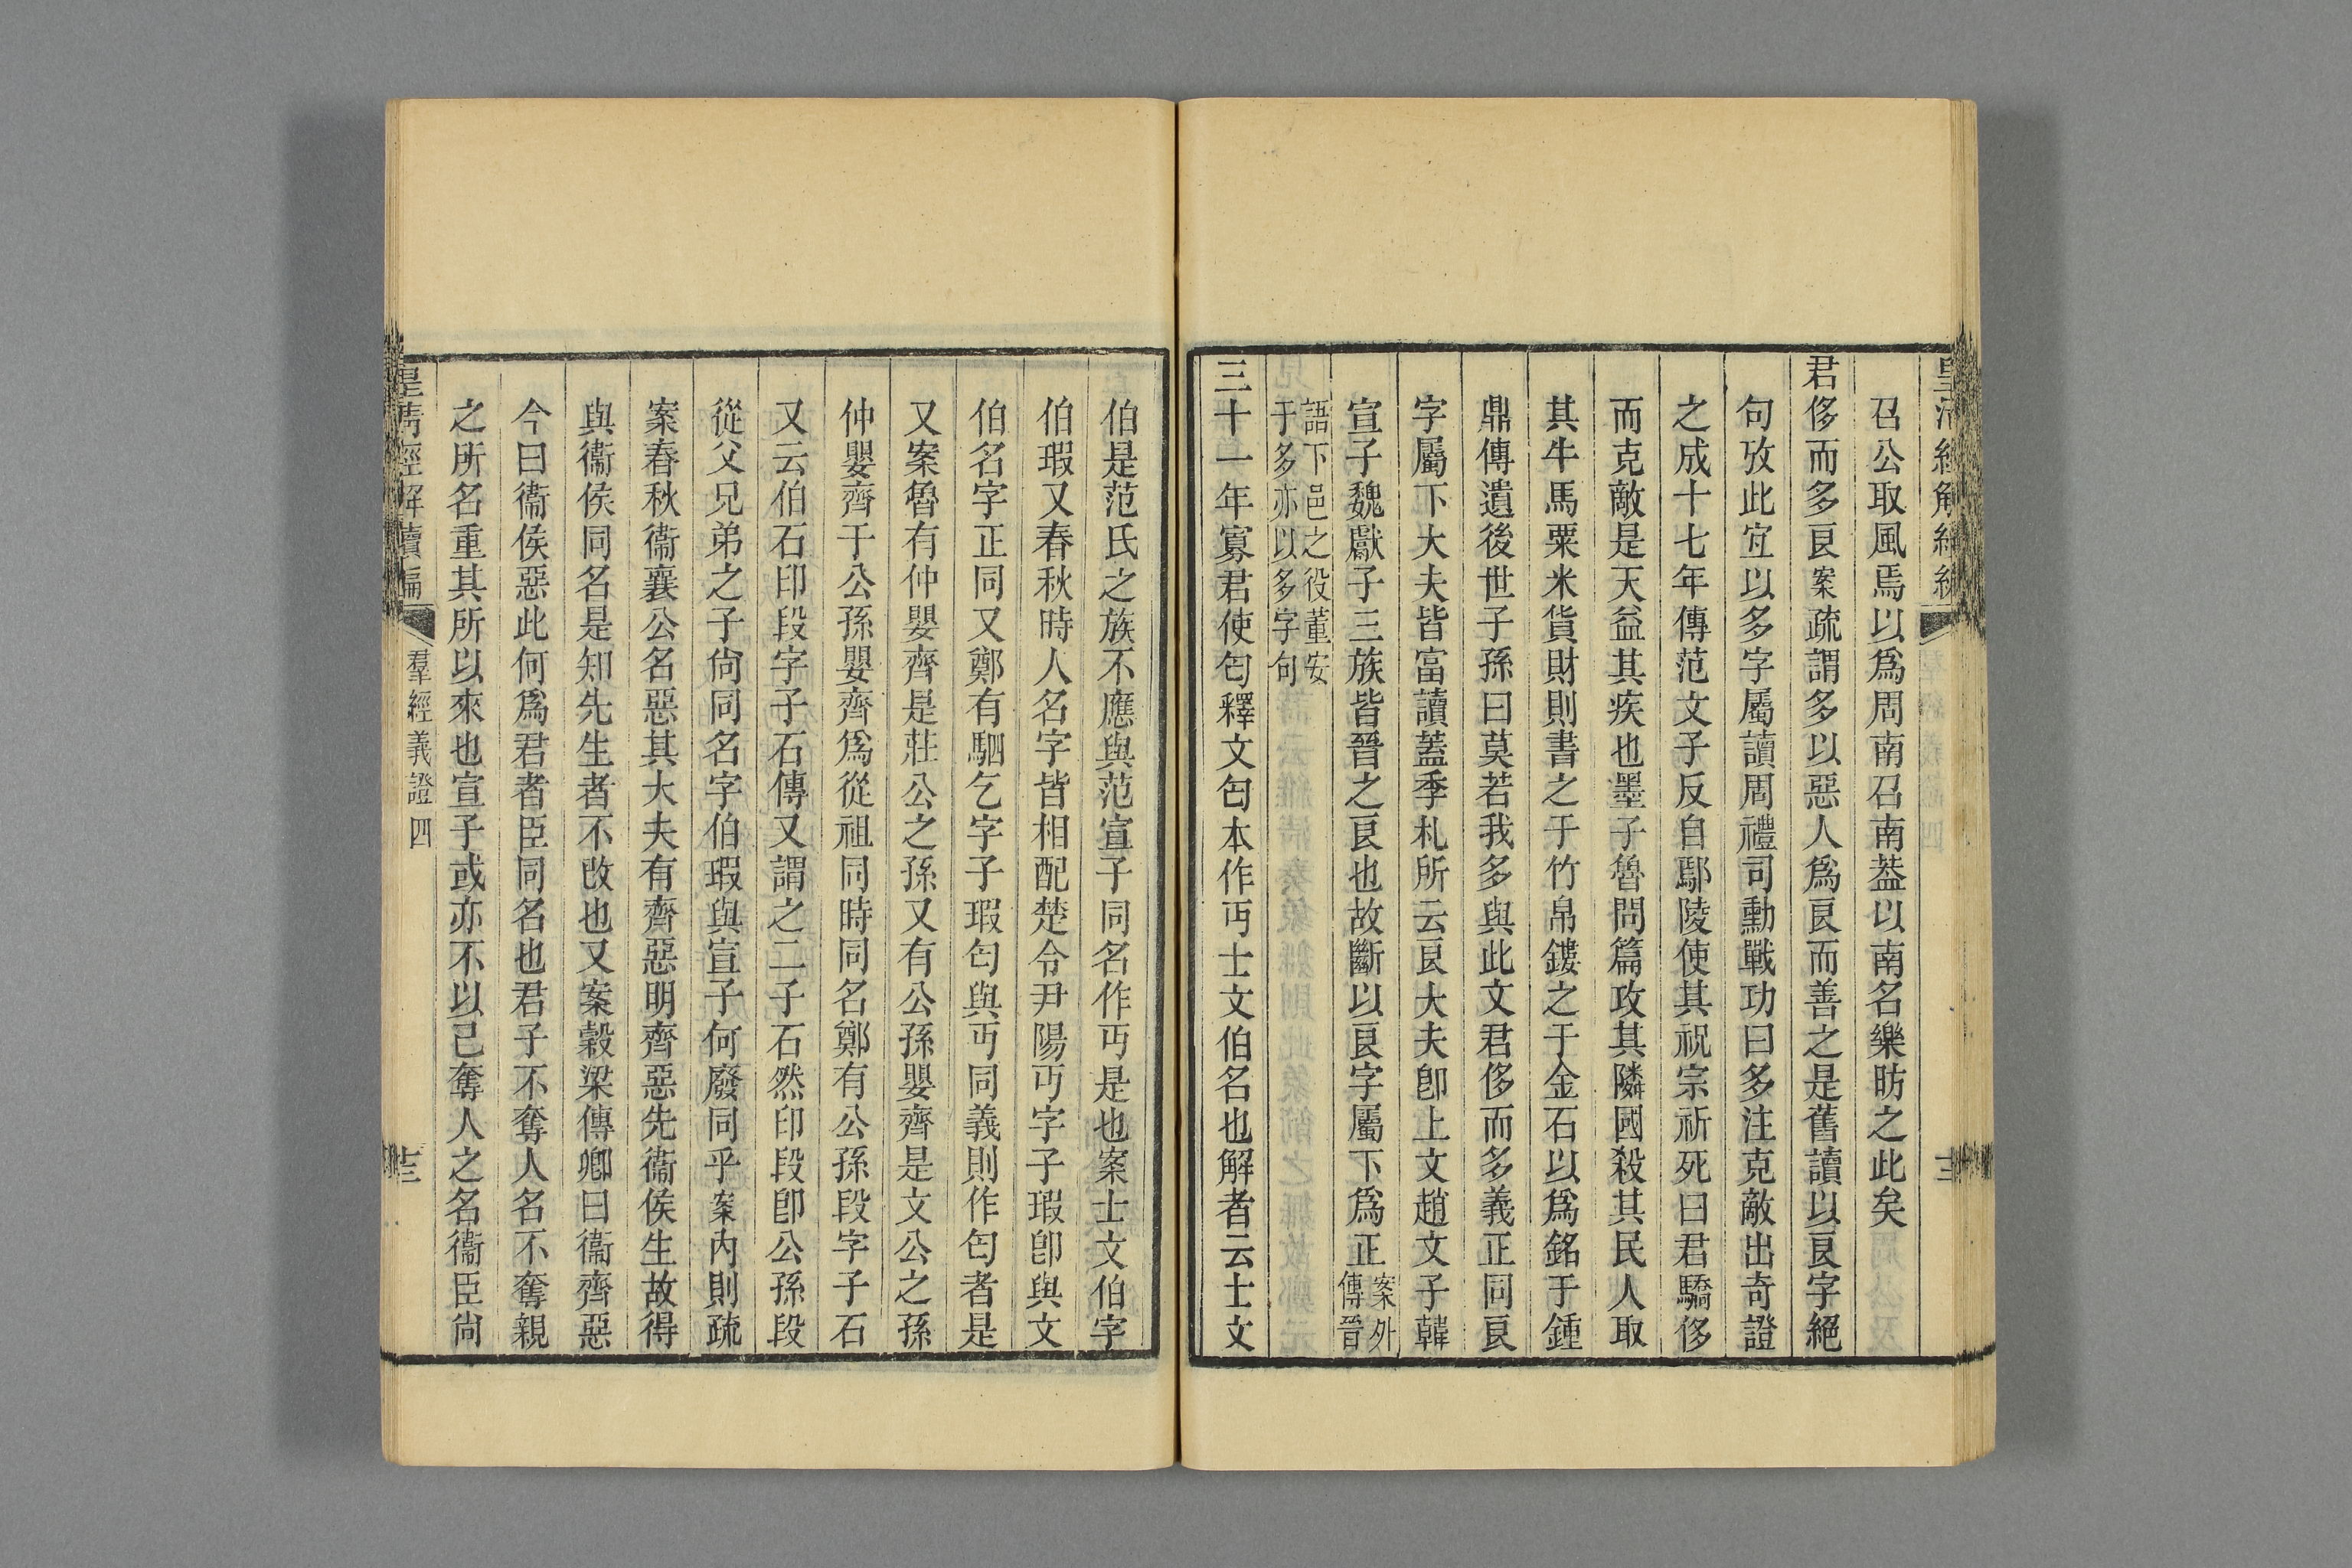 召公取風焉以爲周南召南葢以南名樂昉之此矣
君侈而多良案疏謂多以惡人爲良而善之是舊讀以良字絕
句攷此宐以多字屬讀周禮司勳戰功曰多注克敵出奇證
之成十七年傳范文子反自鄢陵使其祝宗祈死曰君驕侈
而克敵是天益其疾也墨子魯問篇攻其隣國殺其民人取
其牛馬粟米貨財則書之于竹帛鏤之于金石以爲銘于鍾
鼎傳遺後世子孫曰莫若我多與此文君侈而多義正同良
字屬下大夫皆富讀蓋季札所云良大夫卽上文趙文子韓
宣子魏獻子三族皆晉之良也故斷以良字屬下爲正案外傳晉
語下邑之役董安
于多亦以多字句
三十一年寡君使匄釋文匄本作丏士文伯名也解者云士文
伯是范氏之族不應與范宣子同名作丏是也案士文伯字
伯瑕又春秋時人名字皆相配楚令尹陽丏字子瑕卽與文
伯名字正同又鄭有駟乞字子瑕匄與丏同義則作匄者是
又案魯有仲嬰齊是莊公之孫又有公孫嬰齊是文公之孫
仲嬰齊于公孫嬰齊爲從祖同時同名鄭有公孫段字子石
又云伯石印段字子石傳又謂之二子石然印段卽公孫段
從父兄弟之子尙同名字伯瑕與宣子何廢同乎案內則疏
案春秋衞襄公名惡其大夫有齊惡明齊惡先衞侯生故得
與衞侯同名是知先生者不改也又案穀梁傳鄉曰衞齊惡
今曰衞侯惡此何爲君者臣同名也君子不奪人名不奪親
之所名重其所以來也宣子或亦不以己奪人之名衞臣尙
皇清經解續編
羣經義證四
十三